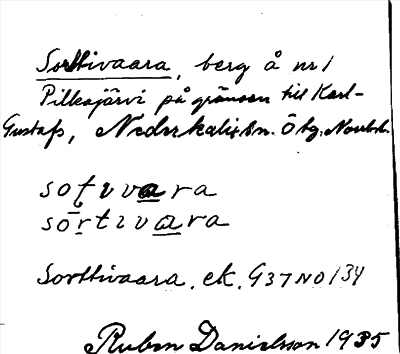 Sorttivaara, berg å nr 1
Pilkajärvi på gränsen till Karl-
Gustafs, Nederkalix sn. Ö bg. Norrb. l.
sortivara
Sorttivaara. ek. G37NO134
Ruben Danielsson 1935